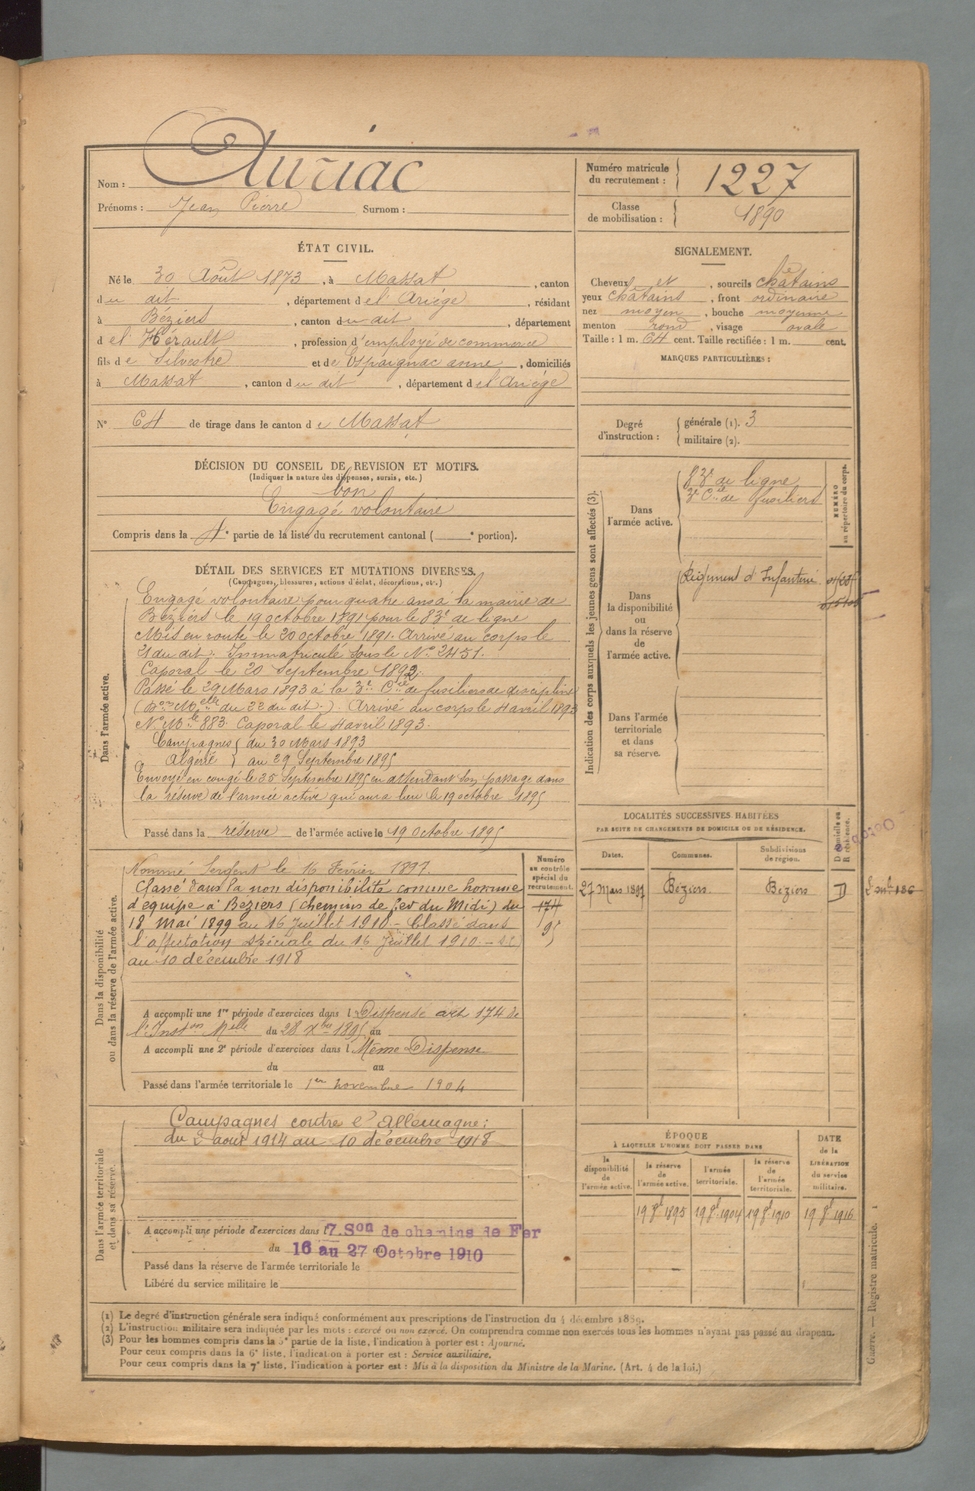 Nom : Auriac
Prénoms : Jean Pierre Surnom :
Numéro matricule du recrutement : 1227
Classe de mobilisation : 1890
ÉTAT CIVIL.
Né le 30 Août 1873, à Massat, canton
du dit, département de l'Ariège, résidant
à Béziers, canton du dit, département
de l'Hérault, profession d'employé de commerce
fils de Silvestre et de Espaignac anne, domiciliés
à Massat, canton du dit, département de l'Ariège
N° 64 de tirage dans le canton de Massat
SIGNALEMENT.
Cheveux et, sourcils châtains
yeux châtains, front ordinaire
nez moyen, bouche moyenne
menton rond, visage ovale
Taille : 1 m. 64 cent. Taille rectifiée : 1 m. cent.
MARQUES PARTICULIÈRES :
Degré d'instruction : générale (1). 3
militaire (2).
DÉCISION DU CONSEIL DE REVISION ET MOTIFS.
(Indiquer la nature des dispenses, sursis, etc.)
bon
Engagé volontaire
Compris dans la 4e partie de la liste du recrutement cantonal ( e portion).
DÉTAIL DES SERVICES ET MUTATIONS DIVERSES.
(Campagnes, blessures, actions d'éclat, décorations, etc.)
Dans l'armée active.
Engagé volontaire pour quatre ans à la mairie de
Béziers le 19 octobre 1891 pour le 83e de ligne
Mis en route le 20 octobre 1891. Arrivé au corps le
21 du dit. Immatriculé sous le N° 2451.
Caporal le 20 Septembre 1892.
Passé le 29 Mars 1893 à la 3e Cie de fusiliers de discipline
du 22 du dit.) Arrivé au corps le 4 avril 1893
N° Mle 883. Caporal le 4 avril 1893.
Campagnes du 30 Mars 1893
Algérie au 29 Septembre 1895
Envoyé en congé le 25 Septembre 1895 en attendant son passage dans
la réserve de l'armée active qui aura lieu le 19 octobre 1895
Passé dans la réserve de l'armée active le 19 octobre 1895
Dans la disponibilité ou dans la réserve de l'armée active.
Nommé Sergent le 16 Février 1897.
Classé dans la non disponibilité comme homme
d'équipe à Béziers (chemins de fer du Midi) du
18 Mai 1899 au 16 Juillet 1910 - Classé dans
l'affectation spéciale du 16 Juillet 1910
au 10 décembre 1918
Numéro au contrôle spécial du recrutement.
174
95
A accompli une 1re période d'exercices dans l Dispensé art 174 de
l'Inston Mlle du 28 Xbre 1895 au
A accompli une 2e période d'exercices dans l Même Dispense
du au
Passé dans l'armée territoriale le 1er novembre 1904
Dans l'armée territoriale et dans sa réserve.
Campagnes contre l'Allemagne :
du 2 août 1914 au 10 décembre 1918
A accompli une période d'exercices dans l 7.Son de chemins de Fer
du 16 au 27 Octobre 1910
Passé dans la réserve de l'armée territoriale le
Libéré du service militaire le
Indication des corps auxquels les jeunes gens sont affectés (3).
NUMÉRO au répertoire du corps.
Dans l'armée active.
83e de ligne
3e Cie de fusiliers
Dans la disponibilité ou dans la réserve de l'armée active.
Régiment d'Infanterie
Dans l'armée territoriale et dans sa réserve.
LOCALITÉS SUCCESSIVES HABITÉES
PAR SUITE DE CHANGEMENTS DE DOMICILE OU DE RÉSIDENCE.
Dates. Communes. Subdivisions de région. D domicile ou R résidence.
27 Mars 1897 Béziers. Béziers D
ÉPOQUE
À LAQUELLE L'HOMME DOIT PASSER DANS
DATE de la LIBÉRATION du service militaire.
la disponibilité de l'armée active. la réserve de l'armée active. l'armée territoriale. la réserve de l'armée territoriale.
19 8bre 1895 19 8bre 1904 19 8bre 1910 19 8bre 1916
Guerre. — Registre matricule. 1
(1) Le degré d'instruction générale sera indiqué conformément aux prescriptions de l'instruction du 4 décembre 1889.
(2) L'instruction militaire sera indiquée par les mots : exercé ou non exercé. On comprendra comme non exercés tous les hommes n'ayant pas passé au drapeau.
(3) Pour les hommes compris dans la 5e partie de la liste, l'indication à porter est : Ajourné.
Pour ceux compris dans la 6e liste, l'indication à porter est : Service auxiliaire.
Pour ceux compris dans la 7e liste, l'indication à porter est : Mis à la disposition du Ministre de la Marine. (Art. 4 de la loi.)